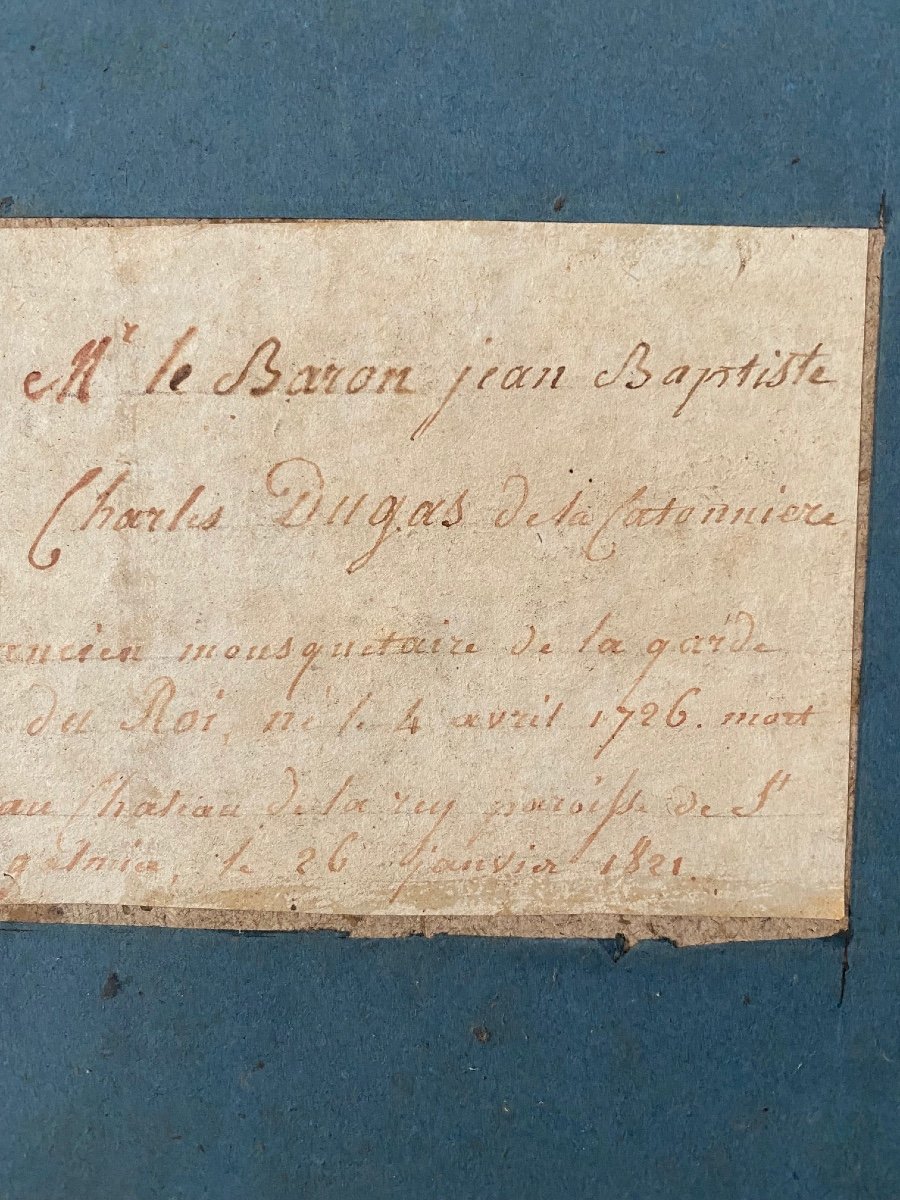 Mr le Baron jean Baptiste
Charles Dugas de la Catonniere
ancien mousquetaire de la garde
du Roi, né le 4 avril 1726. mort
au Chateau de la rey paroisse de St
galmier, le 26 janvier 1821.